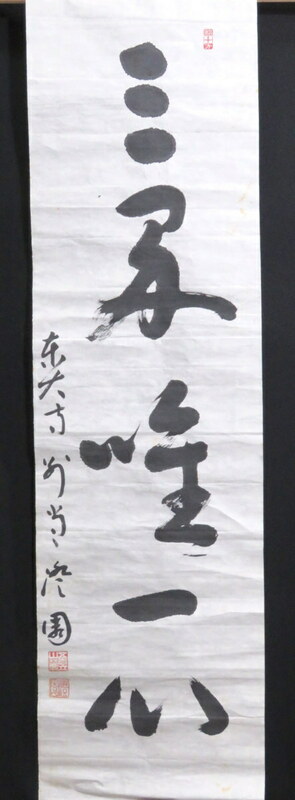 三界唯一心
東大寺別當澄園